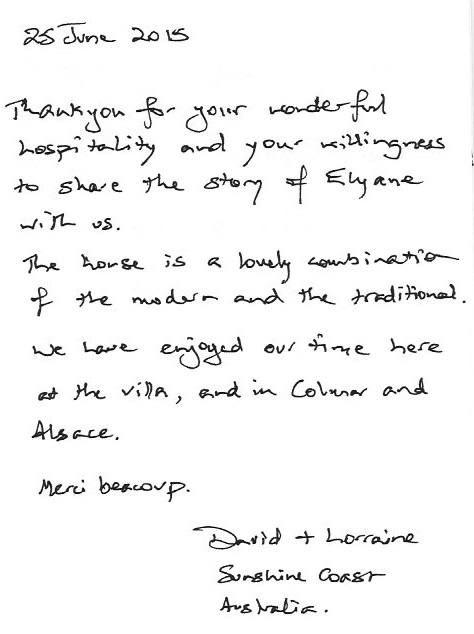 25 June 2015
Thankyou for your wonderful
hospitality and your willingness
to share the story of Elyane
with us.
The house is a lovely combination
of the modern and the traditional.
We have enjoyed our time here
at the villa, and in Colmar and
Alsace.
Merci beacoup.
David + Lorraine
Sunshine Coast
Australia.